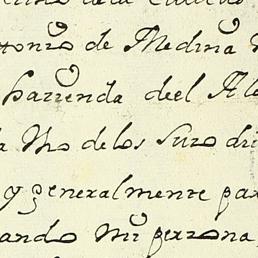 de la
de Medina
hazienda deel
Vno de los suso di
y generalmente par
ando mi perzona